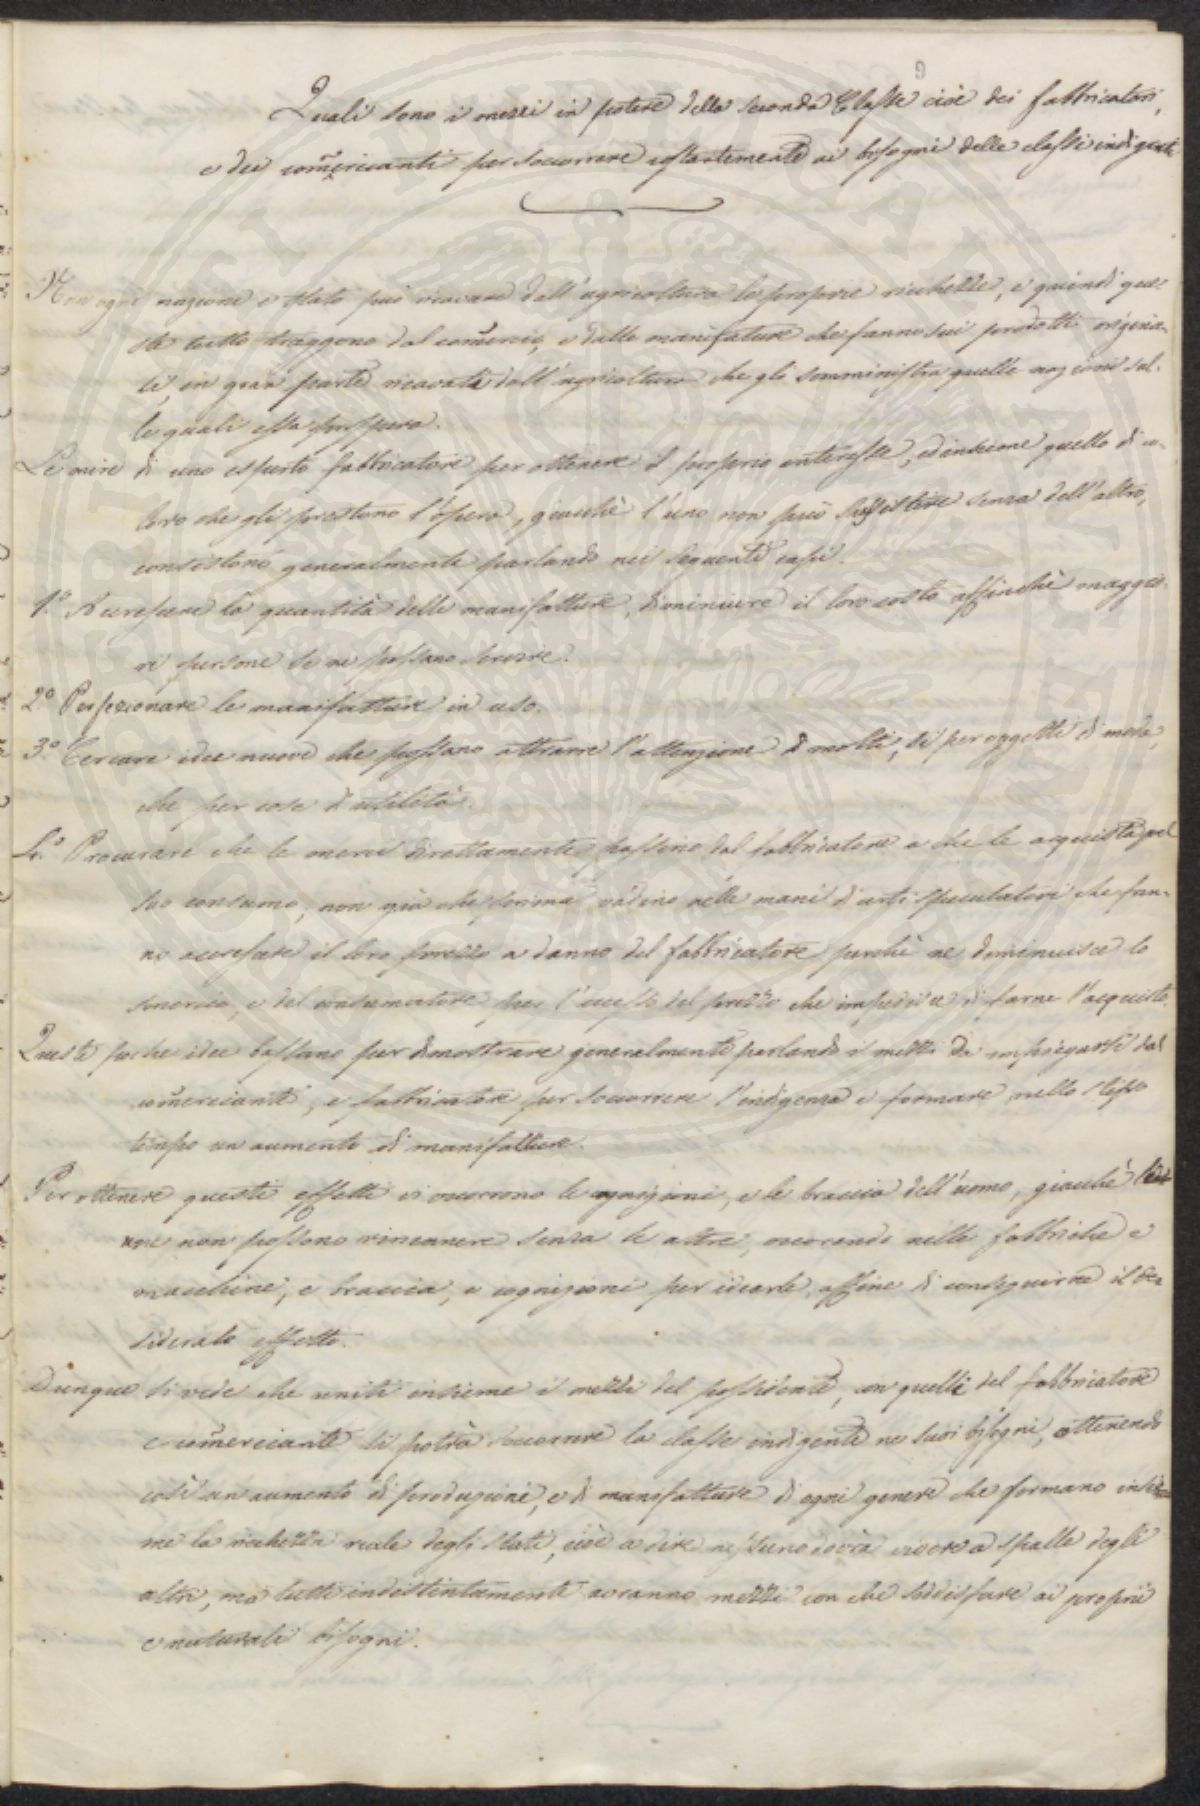 9
Quali sono i mezzi in potere della seconda Classe cioè dei fabbricatori,
e dei com̃ercianti per soccorrere costantemente ai bisogni delle classi indigenti
Non ogni nazione e stato può ricavare dall'agricoltura le proprie ricchezze, e quindi que-
sti tutto traggono dal com̃ercio, e dalle manifature che fanno sui prodotti origina-
li, in gran parte ricavati dall'agricoltura che gli somministra quelle nazioni sul-
le quali essa prospera.
Le mire di uno esperto fabbricatore per ottenere il proprio interesse, ed insieme quello di co-
loro che gli prestono l'opera, giacchè l'uno non può sussistere senza dell'altro,
consistono generalmente parlando nei seguenti capi.
1.º Accrescere la quantità delle manifatture, diminuire il loro costo affinchè maggio-
ri persone se ne possano servire.
2.º Perfezionare le manifatture in uso.
3.º Cercare idee nuove che possano attrarre l'attenzione di molti, sì per oggetti di moda,
che per cose d'utilità.
4.º Procurare che le merci direttamente passino dal fabbricatore a che le acquista pel
suo consumo, non già che prima vadino nelle mani di certi speculatori che fan-
no accrescere il loro prezzo a danno del fabbricatore perchè ne diminuisce lo
smercio, e del consumatore per l'eccesso del prezzo che impedisce di farne l'acquisto.
Queste poche idee bastano per dimostrare generalmente parlando i mezzi da impiegarsi dal
com̃erciante, e fabbricatore per soccorrere l'indigenza e formare nello stesso
tempo un aumento di manifatture.
Per ottenere questi effetti vi occorrono le cognizioni, e le braccia dell'uomo, giacchè
une non possono rimanere senza le altre, occorendo nelle fabbriche e
macchine, e braccia, e cognizioni per idearle, affine di conseguirne il de-
siderato effetto.
Dunque si vede che uniti insieme i mezzi del possidente, con quelli del fabbricatore
e com̃erciante si potrà soccorrere la classe indigente ne suoi bisogni, ottenendo
così un aumento di produzioni, e di manifatture di ogni genere che formano insie-
me la ricchezza reale degli stati, cioè a dire nessuno dovrà vivere a spalle degli
altri, ma tutti indistintamente avranno mezzi con che soddisfare ai proprii
e naturali bisogni.